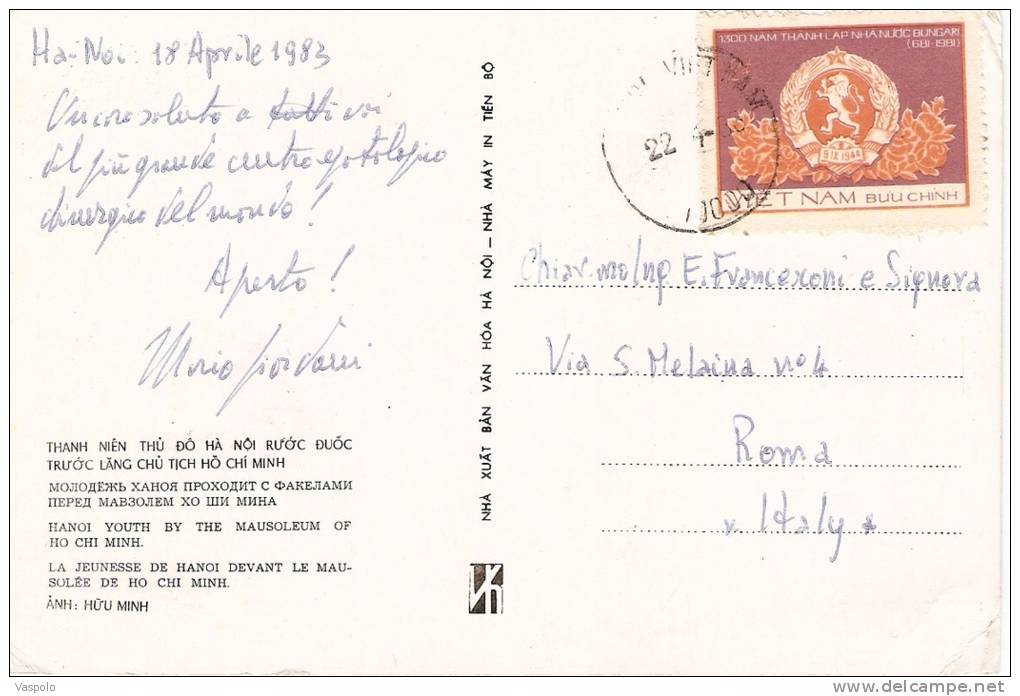 Ha-Noi 18 Aprile 1983
Un caro saluto a tutti voi
dal più grande centro
del mondo!
A presto!
Mario Giordani
THANH NIÊN THỦ ĐÔ HÀ NỘI RƯỚC ĐUỐC
TRƯỚC LĂNG CHỦ TỊCH HỒ CHÍ MINH
МОЛОДЁЖЬ ХАНОЯ ПРОХОДИТ С ФАКЕЛАМИ
ПЕРЕД МАВЗОЛЕМ ХО ШИ МИНА
HANOI YOUTH BY THE MAUSOLEUM OF
HO CHI MINH.
LA JEUNESSE DE HANOI DEVANT LE MAU-
SOLÉE DE HO CHI MINH.
ẢNH: HỮU MINH
NHÀ XUẤT BẢN VĂN HÓA HÀ NỘI — NHÀ MÁY IN TIẾN BỘ
1300 NĂM THÀNH LẬP NHÀ NƯỚC BUNGARI
(681-1981)
9.IX.1944
VIỆT NAM BƯU CHÍNH
VIET NAM
22 4
Chiar.mo Ing. E. Francexoni e Signora
Via S. Melaina n° 4
Roma
Italy
Vaspolo
delcampe.net